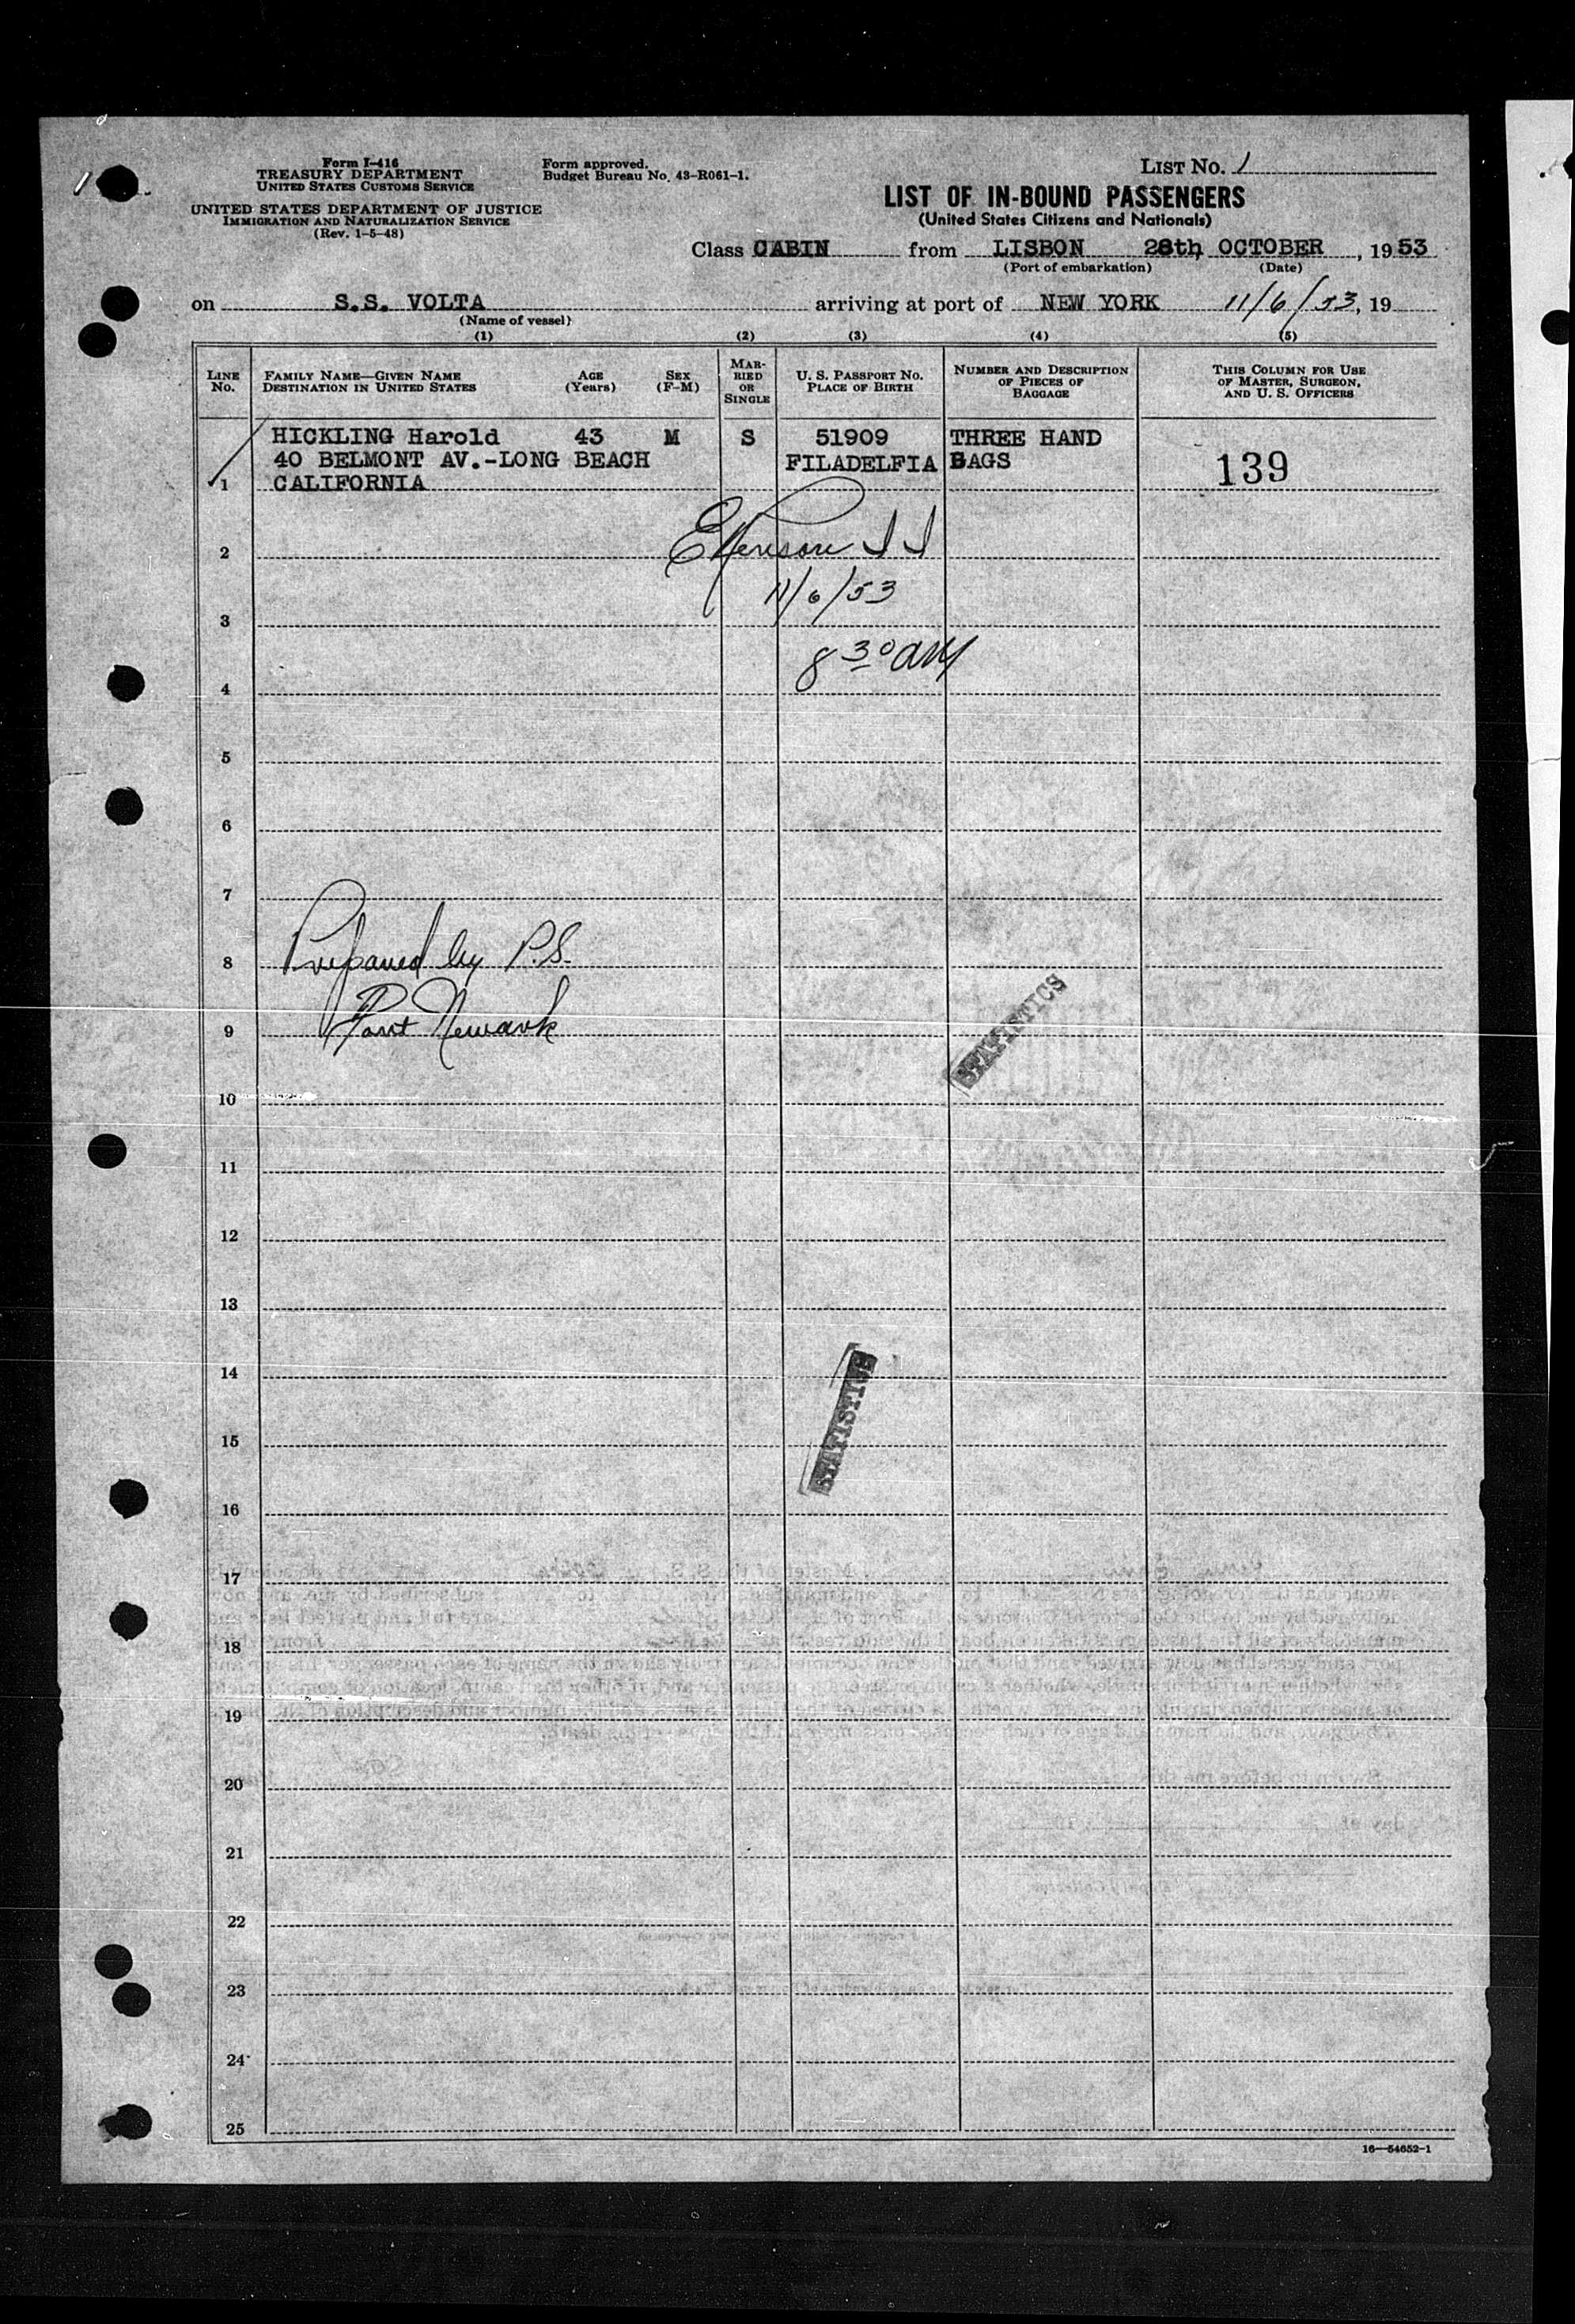 Form I-416
TREASURY DEPARTMENT
UNITED STATES CUSTOMS SERVICE
UNITED STATES DEPARTMENT OF JUSTICE
IMMIGRATION AND NATURALIZATION SERVICE
(Rev. 1-5-48)
Form approved.
Budget Bureau No. 43-R061-1.
LIST NO. 1
LIST OF IN-BOUND PASSENGERS
(United States Citizens and Nationals)
Class CABIN from LISBON 28th OCTOBER, 1953
(Port of embarkation) (Date)
on S.S. VOLTA arriving at port of NEW YORK 11/6/53, 19
(Name of vessel)
(1) (2) (3) (4) (5)
LINE NO.
FAMILY NAME—GIVEN NAME AGE SEX
DESTINATION IN UNITED STATES (Years) (F-M)
MAR-
RIED
OR
SINGLE
U. S. PASSPORT NO.
PLACE OF BIRTH
NUMBER AND DESCRIPTION
OF PIECES OF
BAGGAGE
THIS COLUMN FOR USE
OF MASTER, SURGEON,
AND U. S. OFFICERS
HICKLING Harold 43 M S 51909 THREE HAND
40 BELMONT AV.-LONG BEACH FILADELFIA BAGS 139
1 CALIFORNIA
2
11/6/53
3
8 30 AM
4
5
6
7
8 Prepared by P.S.
9 Port Newark
STATISTICS
10
11
12
13
14
STATISTICS
15
16
17
18
19
20
21
22
23
24
25
16—54652-1